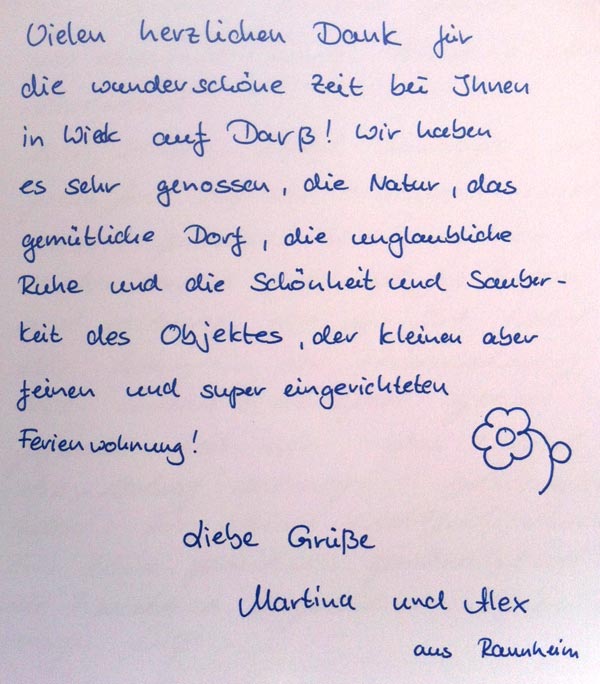 Vielen herzlichen Dank für
die wunderschöne Zeit bei Ihnen
in Wieck auf Darß! Wir haben
es sehr genossen, die Natur, das
gemütliche Dorf, die unglaubliche
Ruhe und die Schönheit und Sauber-
keit des Objektes, der kleinen aber
feinen und super eingerichteten
Ferienwohnung!
Liebe Grüße
Martina und Alex
aus Raunheim